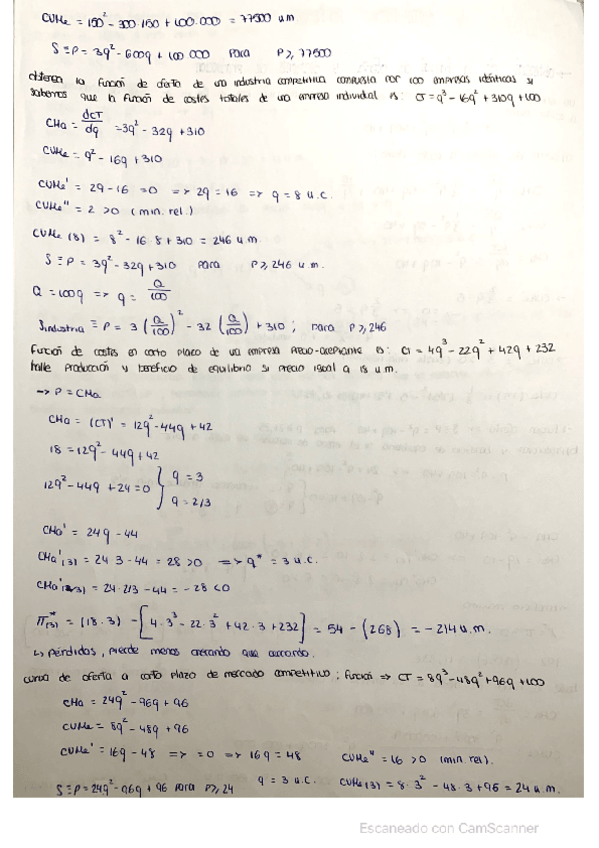 CVMe = 150² - 300·150 + 100.000 = 77500 u m
S ≡ P = 3q² - 600q + 100 000 para P ≥ 77500
obtenga la función de oferta de una industria competitiva compuesta por 100 empresas idénticas si
sabemos que la función de costes totales de una empresa individual es: CT = q³ - 16q² + 310q + 100
CMa = dCT/dq = 3q² - 32q + 310
CVMe = q² - 16q + 310
CVMe' = 2q - 16 = 0 => 2q = 16 => q = 8 u.c.
CVMe'' = 2 > 0 (min. rel.)
CVMe (8) = 8² - 16·8 + 310 = 246 u m.
S ≡ P = 3q² - 32q + 310 para P ≥ 246 u m.
Q = 100q => q = Q/100
Sindustria ≡ P = 3 (Q/100)² - 32 (Q/100) + 310 ; para P ≥ 246
función de costes en corto plazo de una empresa precio-aceptante es: CT = 4q³ - 22q² + 42q + 232
halle producción y beneficio de equilibrio si precio igual a 18 u m.
-> P = CMa
CMa = (CT)' = 12q² - 44q + 42
18 = 12q² - 44q + 42
12q² - 44q + 24 = 0 { q = 3
q = 2/3
CMa' = 24q - 44
CMa'(3) = 24·3 - 44 = 28 > 0 => q* = 3 u.c.
CMa'(2/3) = 24·2/3 - 44 = - 28 < 0
π*(3) = (18·3) - [4·3³ - 22·3² + 42·3 + 232] = 54 - (268) = - 214 u.m.
↳ pérdidas, pierde menos creando que cerrando.
curva de oferta a corto plazo de mercado competitivo; función => CT = 8q³ - 48q² + 96q + 100
CMa = 24q² - 96q + 96
CVMe = 8q² - 48q + 96
CVMe' = 16q - 48 => = 0 => 16q = 48 CVMe'' = 16 > 0 (min. rel).
S ≡ P = 24q² - 96q + 96 para P ≥ 24 q = 3 u.c. CVMe (3) = 8·3² - 48·3 + 96 = 24 u m.
Escaneado con CamScanner